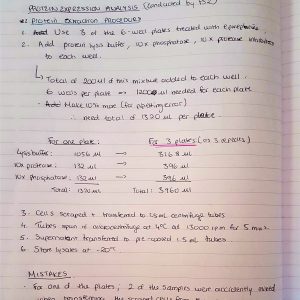 PROTEIN EXPRESSION ANALYSIS (conducted by
PROTEIN EXTRACTION PROCEDURE
1. Add Use 3 of the 6-well plates treated with
2. Add protein lysis buffer, 10x phosphatase, 10x protease inhibitors
to each well.
Total of 200ul of this mixture added to each well.
6 wells per plate → 1200ul needed for each plate
Add Make 10% more (for pipetting error)
∴ need total of 1320 ul per plate.
For one plate: For 3 plates (as 3 repeats)
Lysis buffer: 1056 ul → 3168 ul
10x protease: 132 ul → 396 ul
10x Phosphatase: 132 ul → 396 ul
Total: 1320 ul Total: 3960 ul
3. Cells scraped + transferred to 1.5ml centrifuge tubes
4. Tubes spun at 4°C at 13000 rpm for 5 mins
5. Supernatant transferred to 1.5 ml tubes.
6. Store lysates at -20°C
MISTAKES
• For one of the plates, 2 of the samples were accidently mixed
when transferring the scraped cells from